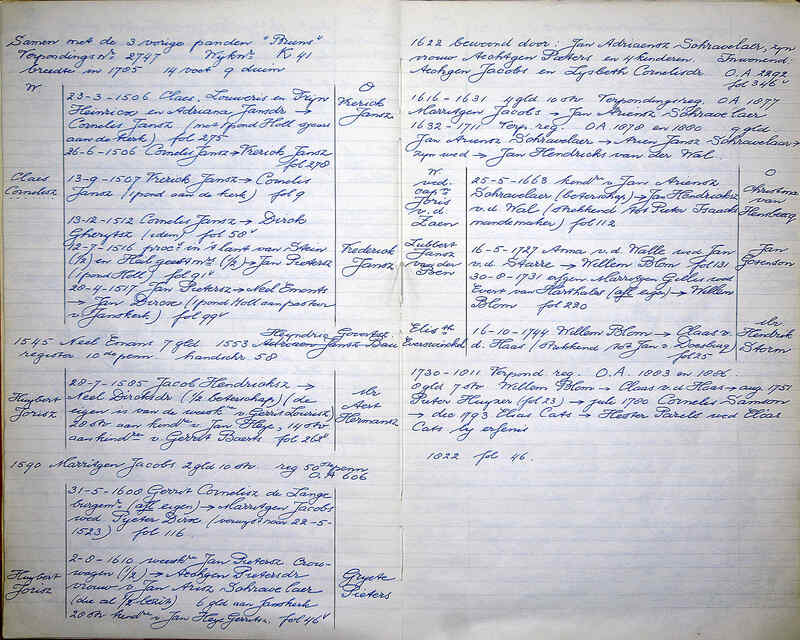 Samen met de 3 vorige panden "Pruens"
Verpondings no 2747 Wijk no K 41
breedte in 1785 14 voet 9 duim
W
O
23-3-1506 Claes, Louweris en Trijn
Heinricx en Adriana Jansdr →
Cornelis Jansz (met 1 pond Holl sjaers
aan de kerk) fol 275
26-6-1506 Cornelis Jansz → Vrerick Jansz
fol 278
Vrerick
Jansz
Claes
Cornelisz
13-9-1507 Vrerick Jansz → Cornelis
Jansz (1 pond aan de kerk) fol 9
13-12-1512 Cornelis Jansz → Dirck
Gherytsz (idem) fol 58v
12-7-1516 proc. in 't lant van Stein
(½) en Heil geest (½) → Jan Pietersz
(1 pond Holl) fol 91v
28-4-1517 Jan Pietersz → Neel Emonts
→ Jan Dircx (1 pond Holl aan pastoor
v Janskerk) fol 99v
Frederick
Jansz
1545 Neel Emans 7 gld 1553 Heyndrix Govertsz
register 10de penn. handschr. 58
Huybert
Jorisz
28-7-1585 Jacob Hendricksz →
Neel Dircksdr (½ boterschap) (de
eigen is van de weesk v Gerrit Lourisz)
20 str aan kindn v Jan Heye, 14 str
aan kindn v Gerrit Baerts fol 262v
Mr
Aert
Hermansz
1590 Marritgen Jacobs 2 gld 10 str. reg 50ste penn
O.A 606
31-5-1608 Gerrit Cornelisz de Lange
burgemr (afl. eigen) → Marritgen Jacobs
wed Pyeter Dirx (verwijst naar 22-5-
1523) fol 116
Huybert
Jorisz
2-8-1610 weeskn Jan Pietersz Crou-
wagen (½) → Aechgen Pietersdr
vrouw v Jan Arisz Schravelaer
(die al ½ bezit) 6 gld aan Janskerk
20 str kindn v Jan Heye Gerritsz. fol 46v
Gryete
Pieters
1622 bewoond door: Jan Adriaensz Schravelaer, zijn
vrouw Aechtgen Pieters en 4 kinderen. Inwonend:
Aechgen Jacobs en Lysbeth Cornelisdr O.A 2292
fol 346v
1616-1631 4 gld 10 str Verpondingsreg. O.A 1877
Marritgen Jacobs → Jan Ariensz Schravelaer
1632-1711 Verp. reg. O.A. 1878 en 1880 9 gld
Jan Ariensz Schravelaer → Arien Jansz Schravelaer →
zijn wed → Jan Hendricks van der Wal.
W
wed.
Joris
v.d.
Laen
25-5-1663 kindn v Jan Ariensz
Schravelaer (boterschap) → Jan Hendricksz
v.d. Wal (strekkend tot Pieter Isaacks
mandemaker) fol 112
O
Christina
van
Hensberg
Lubbert
Jansz
van der
Ben
16-5-1727 Anna v.d. Walle wed Jan
v.d. Starre → Willem Blom fol 131
30-8-1731 erfgen. Marritgen Gillis wed
Evert van Harthals (afl. eigen) → Willem
Blom fol 220
Jan
Govenson
Elis
Everswinckel
16-10-1744 Willem Blom → Claas v.
d. Haas (strekkend tot Jan v Doesburg)
fol 25
Mr
Hendrik
Storm
1730-1811 Verpond reg. O.A. 1883 en 1886
8 gld 7 str Willem Blom → Claas v.d. Haas → aug 1751
Pieter Huyzer (fol 23) → julij 1780 Cornelis Samson
→ dec 1793 Elias Cats → Hester Pareld wed Elias
Cats bij erfenis
1822 fol 46.